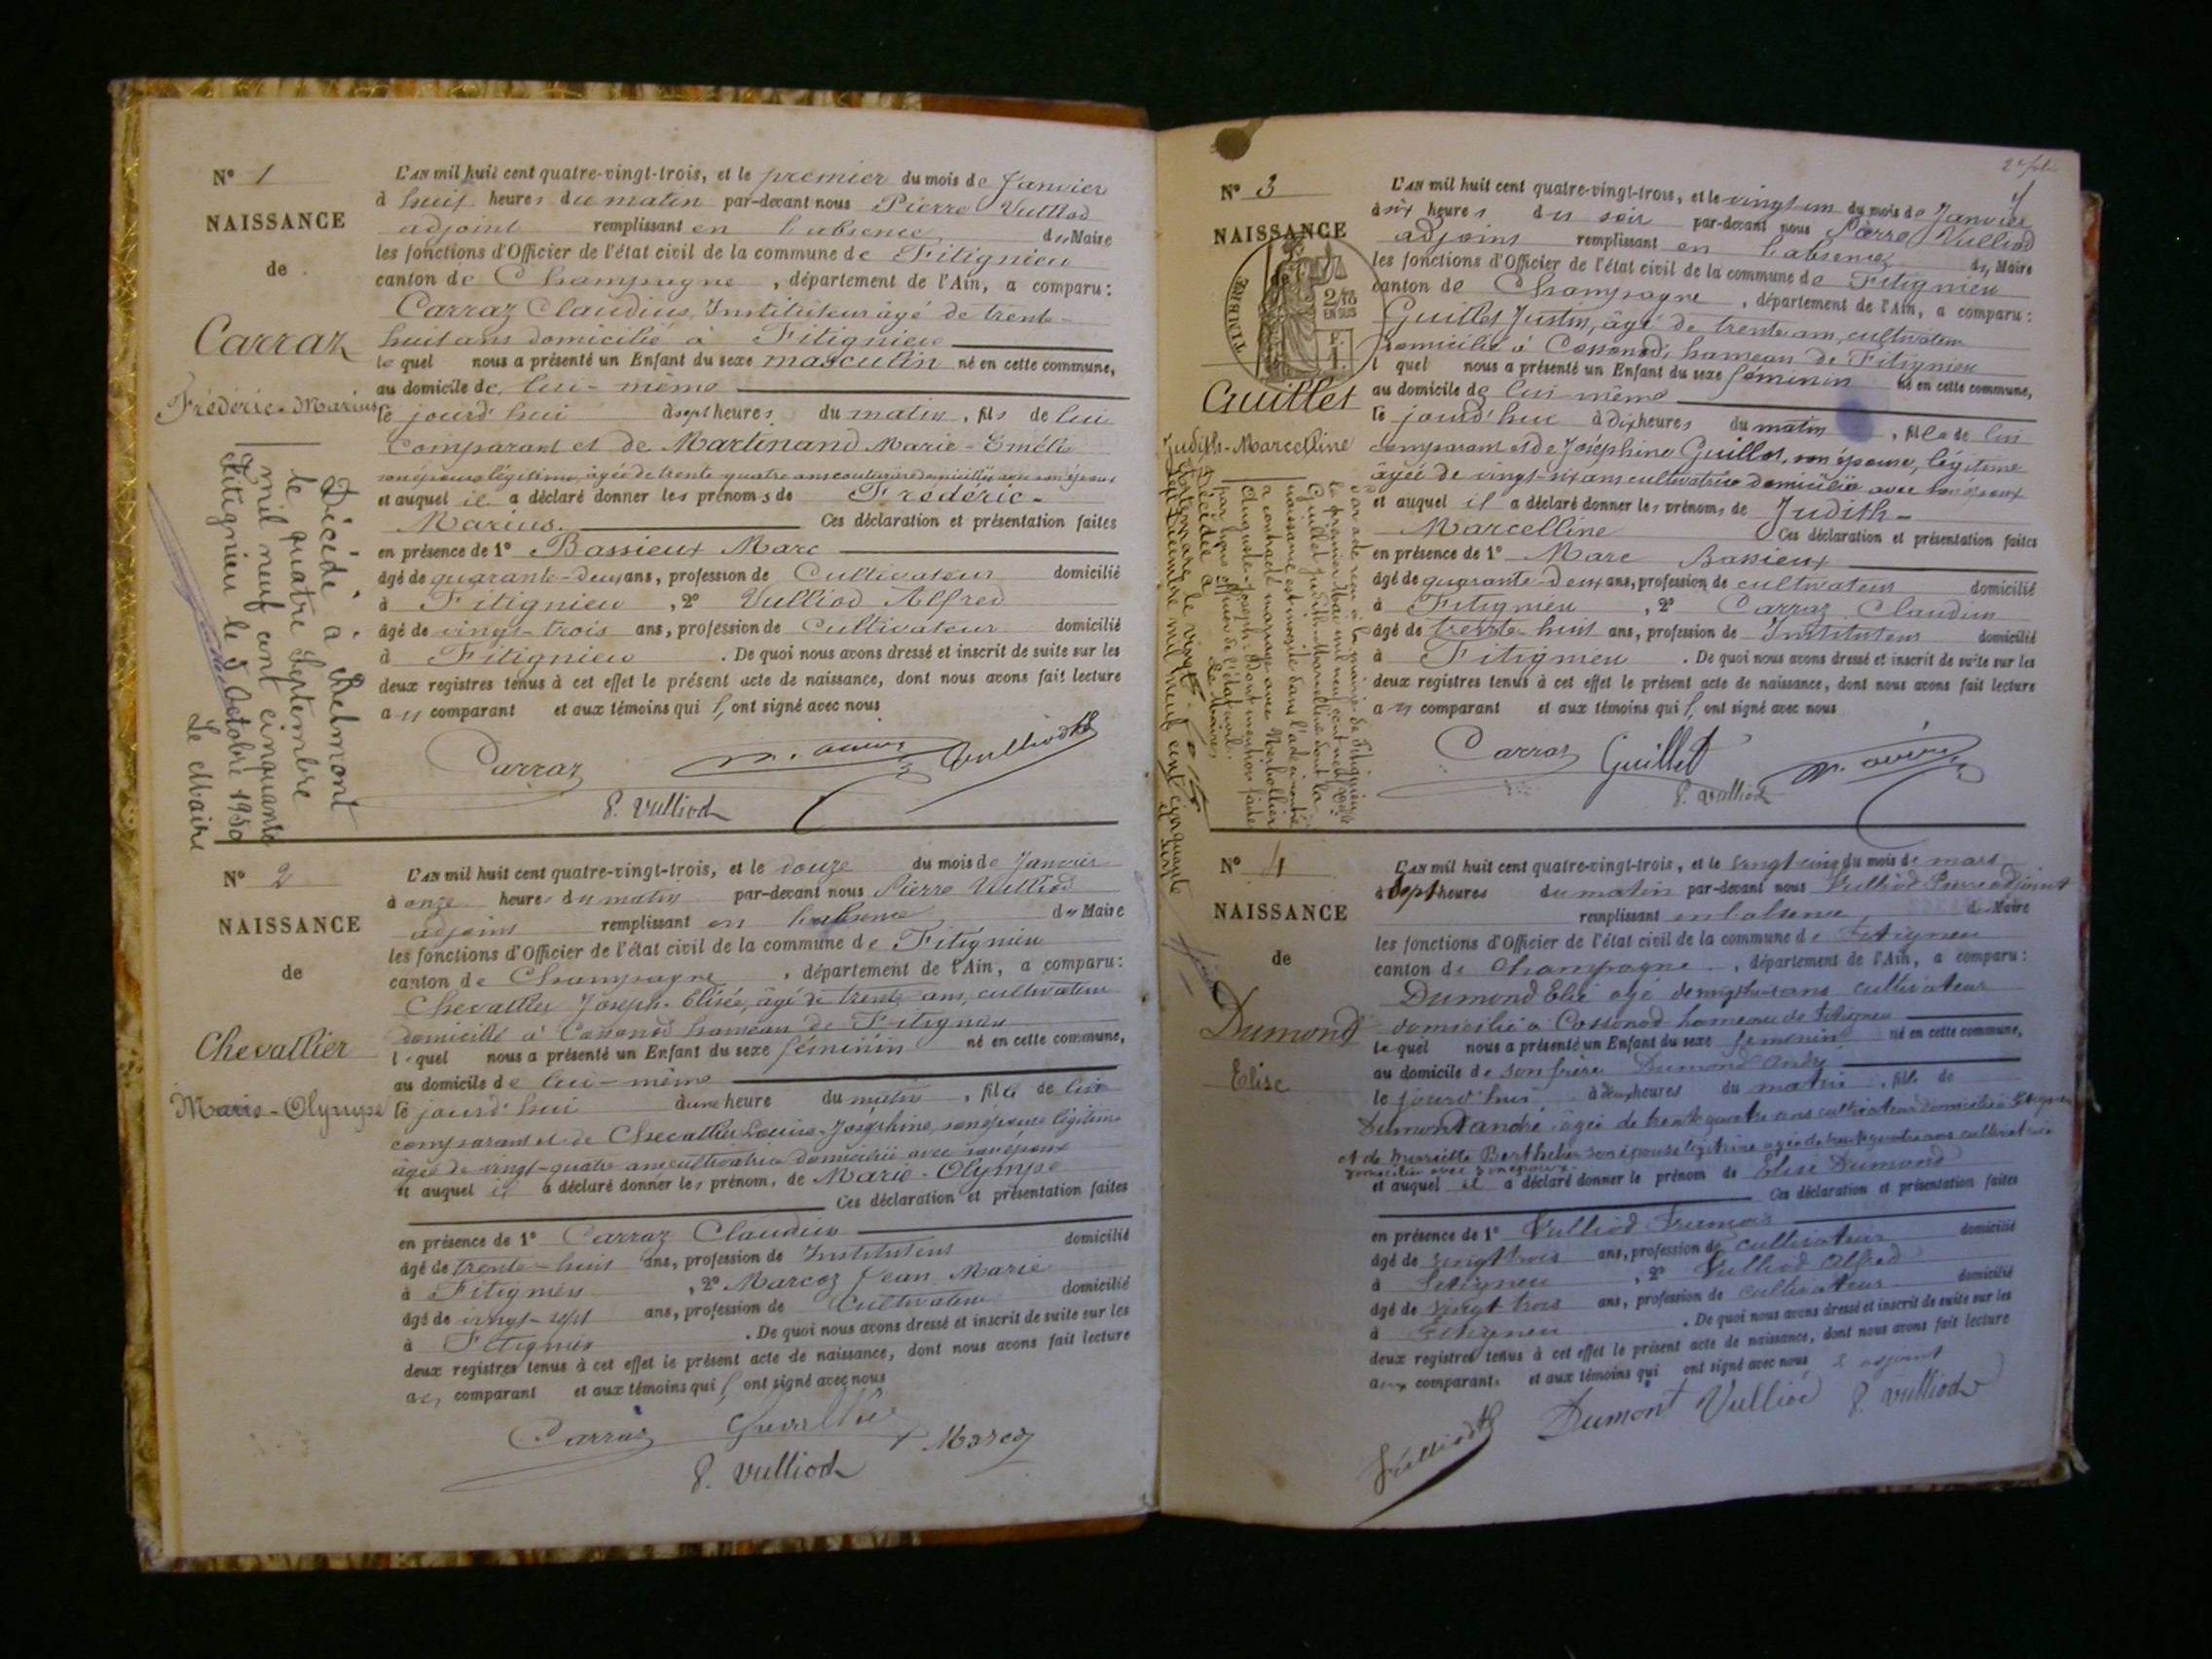 N° 1
NAISSANCE
de
Carraz
Frédéric-Marius
Décédé à Chelmont
le quatre Septembre
mil neuf cent cinquante
Fitignieu le 5 Octobre 1950
Le Maire
L'AN mil huit cent quatre-vingt-trois, et le premier du mois de Janvier
à huit heures du matin par-devant nous Pierre Vulliod
adjoint remplissant en l'absence du Maire
les fonctions d'Officier de l'état civil de la commune de Fitignieu
canton de Champagne, département de l'Ain, a comparu:
Carraz Claudius, Instituteur âgé de trente-
huit ans domicilié à Fitignieu
lequel nous a présenté un Enfant du sexe masculin né en cette commune,
au domicile de lui-même
le jourd'hui à sept heures du matin, fils de lui
comparant et de Martinand Marie-Emélie
son épouse légitime, âgée de trente quatre ans couturière domiciliée avec son époux
et auquel il a déclaré donner les prénoms de Frédéric-
Marius. Ces déclaration et présentation faites
en présence de 1° Bassieux Marc
âgé de quarante-deux ans, profession de Cultivateur domicilié
à Fitignieu, 2° Vulliod Alfred
âgé de vingt-trois ans, profession de Cultivateur domicilié
à Fitignieu. De quoi nous avons dressé et inscrit de suite sur les
deux registres tenus à cet effet le présent acte de naissance, dont nous avons fait lecture
au comparant et aux témoins qui ont signé avec nous
Carraz Vulliod
P. Vulliod
N° 2
NAISSANCE
de
Chevallier
Marie-Olympe
L'AN mil huit cent quatre-vingt-trois, et le douze du mois de Janvier
à onze heures du matin par-devant nous Pierre Vulliod
adjoint remplissant en l'absence du Maire
les fonctions d'Officier de l'état civil de la commune de Fitignieu
canton de Champagne, département de l'Ain, a comparu:
Chevallier Joseph-Elisée, âgé de trente ans, cultivateur
domicilié à Cossonod hameau de Fitignieu
lequel nous a présenté un Enfant du sexe féminin né en cette commune,
au domicile de lui-même
le jourd'hui à une heure du matin, fille de lui
comparant et de Chevallier Louise-Joséphine, son épouse légitime
âgée de vingt-quatre ans cultivatrice domiciliée avec son époux
et auquel il a déclaré donner les prénoms de Marie-Olympe
Ces déclaration et présentation faites
en présence de 1° Carraz Claudius
âgé de trente-huit ans, profession de Instituteur domicilié
à Fitignieu, 2° Marcoz Jean Marie
âgé de vingt-sept ans, profession de Cultivateur domicilié
à Fitignieu. De quoi nous avons dressé et inscrit de suite sur les
deux registres tenus à cet effet le présent acte de naissance, dont nous avons fait lecture
au comparant et aux témoins qui ont signé avec nous
Carraz Chevallier Marcoz
P. Vulliod
N° 3
NAISSANCE
TIMBRE
2/10
EN SUS
Guillet
Judith-Marcelline
L'AN mil huit cent quatre-vingt-trois, et le vingt un du mois de Janvier
à six heures du soir par-devant nous Pierre Vulliod
adjoint remplissant en l'absence du Maire
les fonctions d'Officier de l'état civil de la commune de Fitignieu
canton de Champagne, département de l'Ain, a comparu:
Guillet Justin, âgé de trente un, cultivateur
domicilié à Cossonod, hameau de Fitignieu
lequel nous a présenté un Enfant du sexe féminin né en cette commune,
au domicile de lui-même
le jourd'hui à dix heures du matin, fille de lui
comparant et de Joséphine Guillot, son épouse, légitime
âgée de vingt-six ans cultivatrice domiciliée avec son époux
et auquel il a déclaré donner les prénoms de Judith-
Marcelline Ces déclaration et présentation faites
en présence de 1° Marc Bassieux
âgé de quarante-deux ans, profession de cultivateur domicilié
à Fitignieu, 2° Carraz Claudius
âgé de trente-huit ans, profession de Instituteur domicilié
à Fitignieu. De quoi nous avons dressé et inscrit de suite sur les
deux registres tenus à cet effet le présent acte de naissance, dont nous avons fait lecture
au comparant et aux témoins qui ont signé avec nous
Carraz Guillet
P. Vulliod
N° 4
NAISSANCE
de
Dumond
Elise
L'AN mil huit cent quatre-vingt-trois, et le vingt cinq du mois de mars
à sept heures du matin par-devant nous Vulliod Pierre adjoint
remplissant en l'absence du Maire
les fonctions d'Officier de l'état civil de la commune de Fitignieu
canton de Champagne, département de l'Ain, a comparu:
Dumond Elie âgé de vingt huit ans cultivateur
domicilié à Cossonod hameau de Fitignieu
lequel nous a présenté un Enfant du sexe féminin né en cette commune,
au domicile de son frère Dumond André
le jourd'hui à deux heures du matin, fille de
Dumont andré âgé de trente quatre ans cultivateur domicilié à Fitignieu
et de Mariette Berthelier son épouse légitime âgée de trente quatre ans cultivatrice
domiciliée avec son époux
et auquel il a déclaré donner le prénom de Elise Dumond
Ces déclaration et présentation faites
en présence de 1° Vulliod François
âgé de vingt trois ans, profession de cultivateur domicilié
à Fitignieu, 2° Vulliod Alfred
âgé de vingt trois ans, profession de cultivateur domicilié
à Fitignieu. De quoi nous avons dressé et inscrit de suite sur les
deux registres tenus à cet effet le présent acte de naissance, dont nous avons fait lecture
aux comparants et aux témoins qui ont signé avec nous
Vulliod Dumont Vulliod P. Vulliod